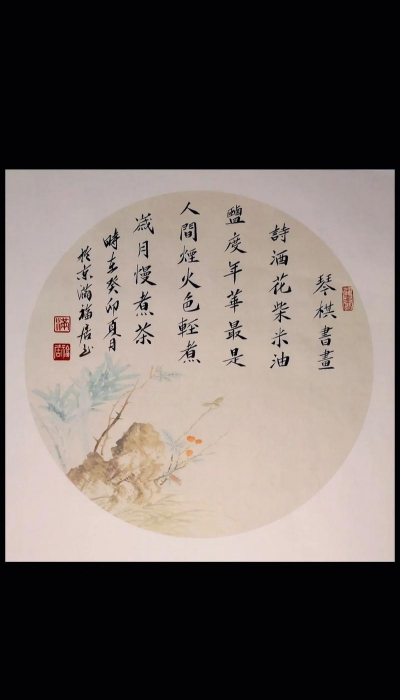 琴棋書畫
詩酒花柴米油
鹽度年華最是
人間煙火色輕煮
歲月慢煮茶
時在癸卯夏月
於京滿福居